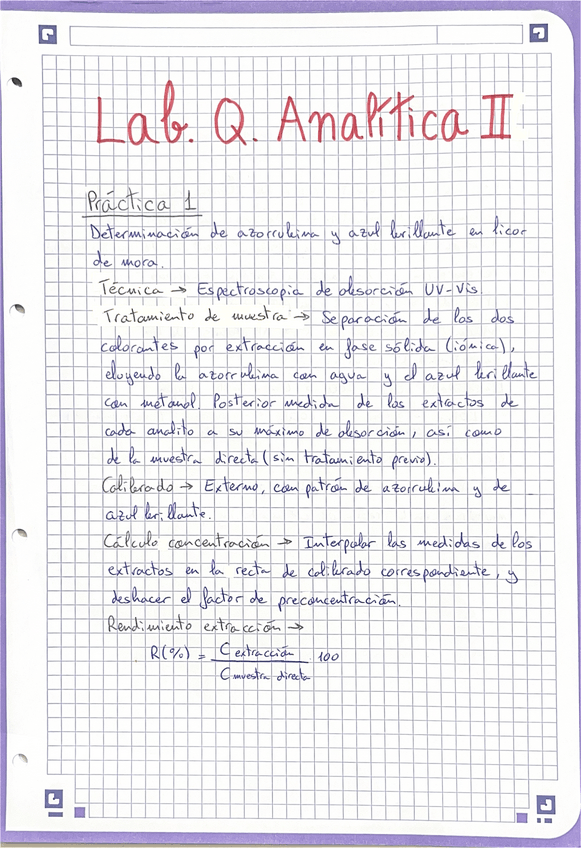 Lab. Q. Analítica II
Práctica 1
Determinación de azorrubina y azul brillante en licor
de mora.
Técnica → Espectroscopia de absorción UV-Vis
Tratamiento de muestra → Separación de los dos
colorantes por extracción en fase sólida (iónica),
eluyendo la azorrubina con agua y el azul brillante
con metanol. Posterior medida de los extractos de
cada analito a su máximo de absorción, así como
de la muestra directa (sin tratamiento previo).
Calibrado → Externo, con patrón de azorrubina y de
azul brillante.
Cálculo concentración → Interpolar las medidas de los
extractos en la recta de calibrado correspondiente, y
deshacer el factor de preconcentración.
Rendimiento extracción →
R(%) = C extracción / C muestra directa · 100